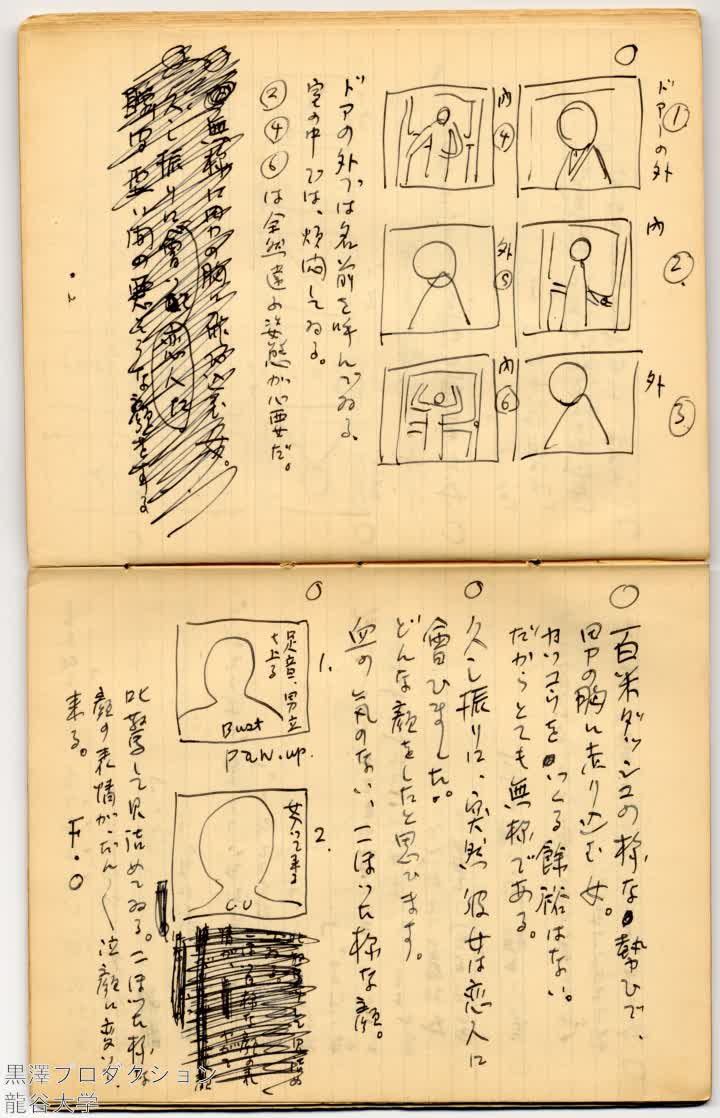 ① ドアーの外
② 内
③ 外
内 ④
外 ⑤
内 ⑥
ドアの外では名前を呼んでゐる、
室の中では、煩悶してゐる。
② ④ ⑥ は全然違ふ姿態が必要だ。
無様に男の胸に
久し振りに會った恋人に
間の悪さうな顔をする
百米ダッシュの様な勢ひで、
男の胸に走り込む女。
カッコウをつくる餘裕はない。
だからとても無様である。
久し振りに、突然彼女は恋人に
會ひました。
どんな顔をしたと思ひます。
血の気のない、こはゞった様な顔。
1.
足音、男立
上る
Bust
pan.up.
2.
入って来る
C.U
叱驚して見詰めてゐる。こはゞった様な
顔の表情がだんく泣顔に変って
来る。 F・O
黒澤プロダクション
龍谷大学